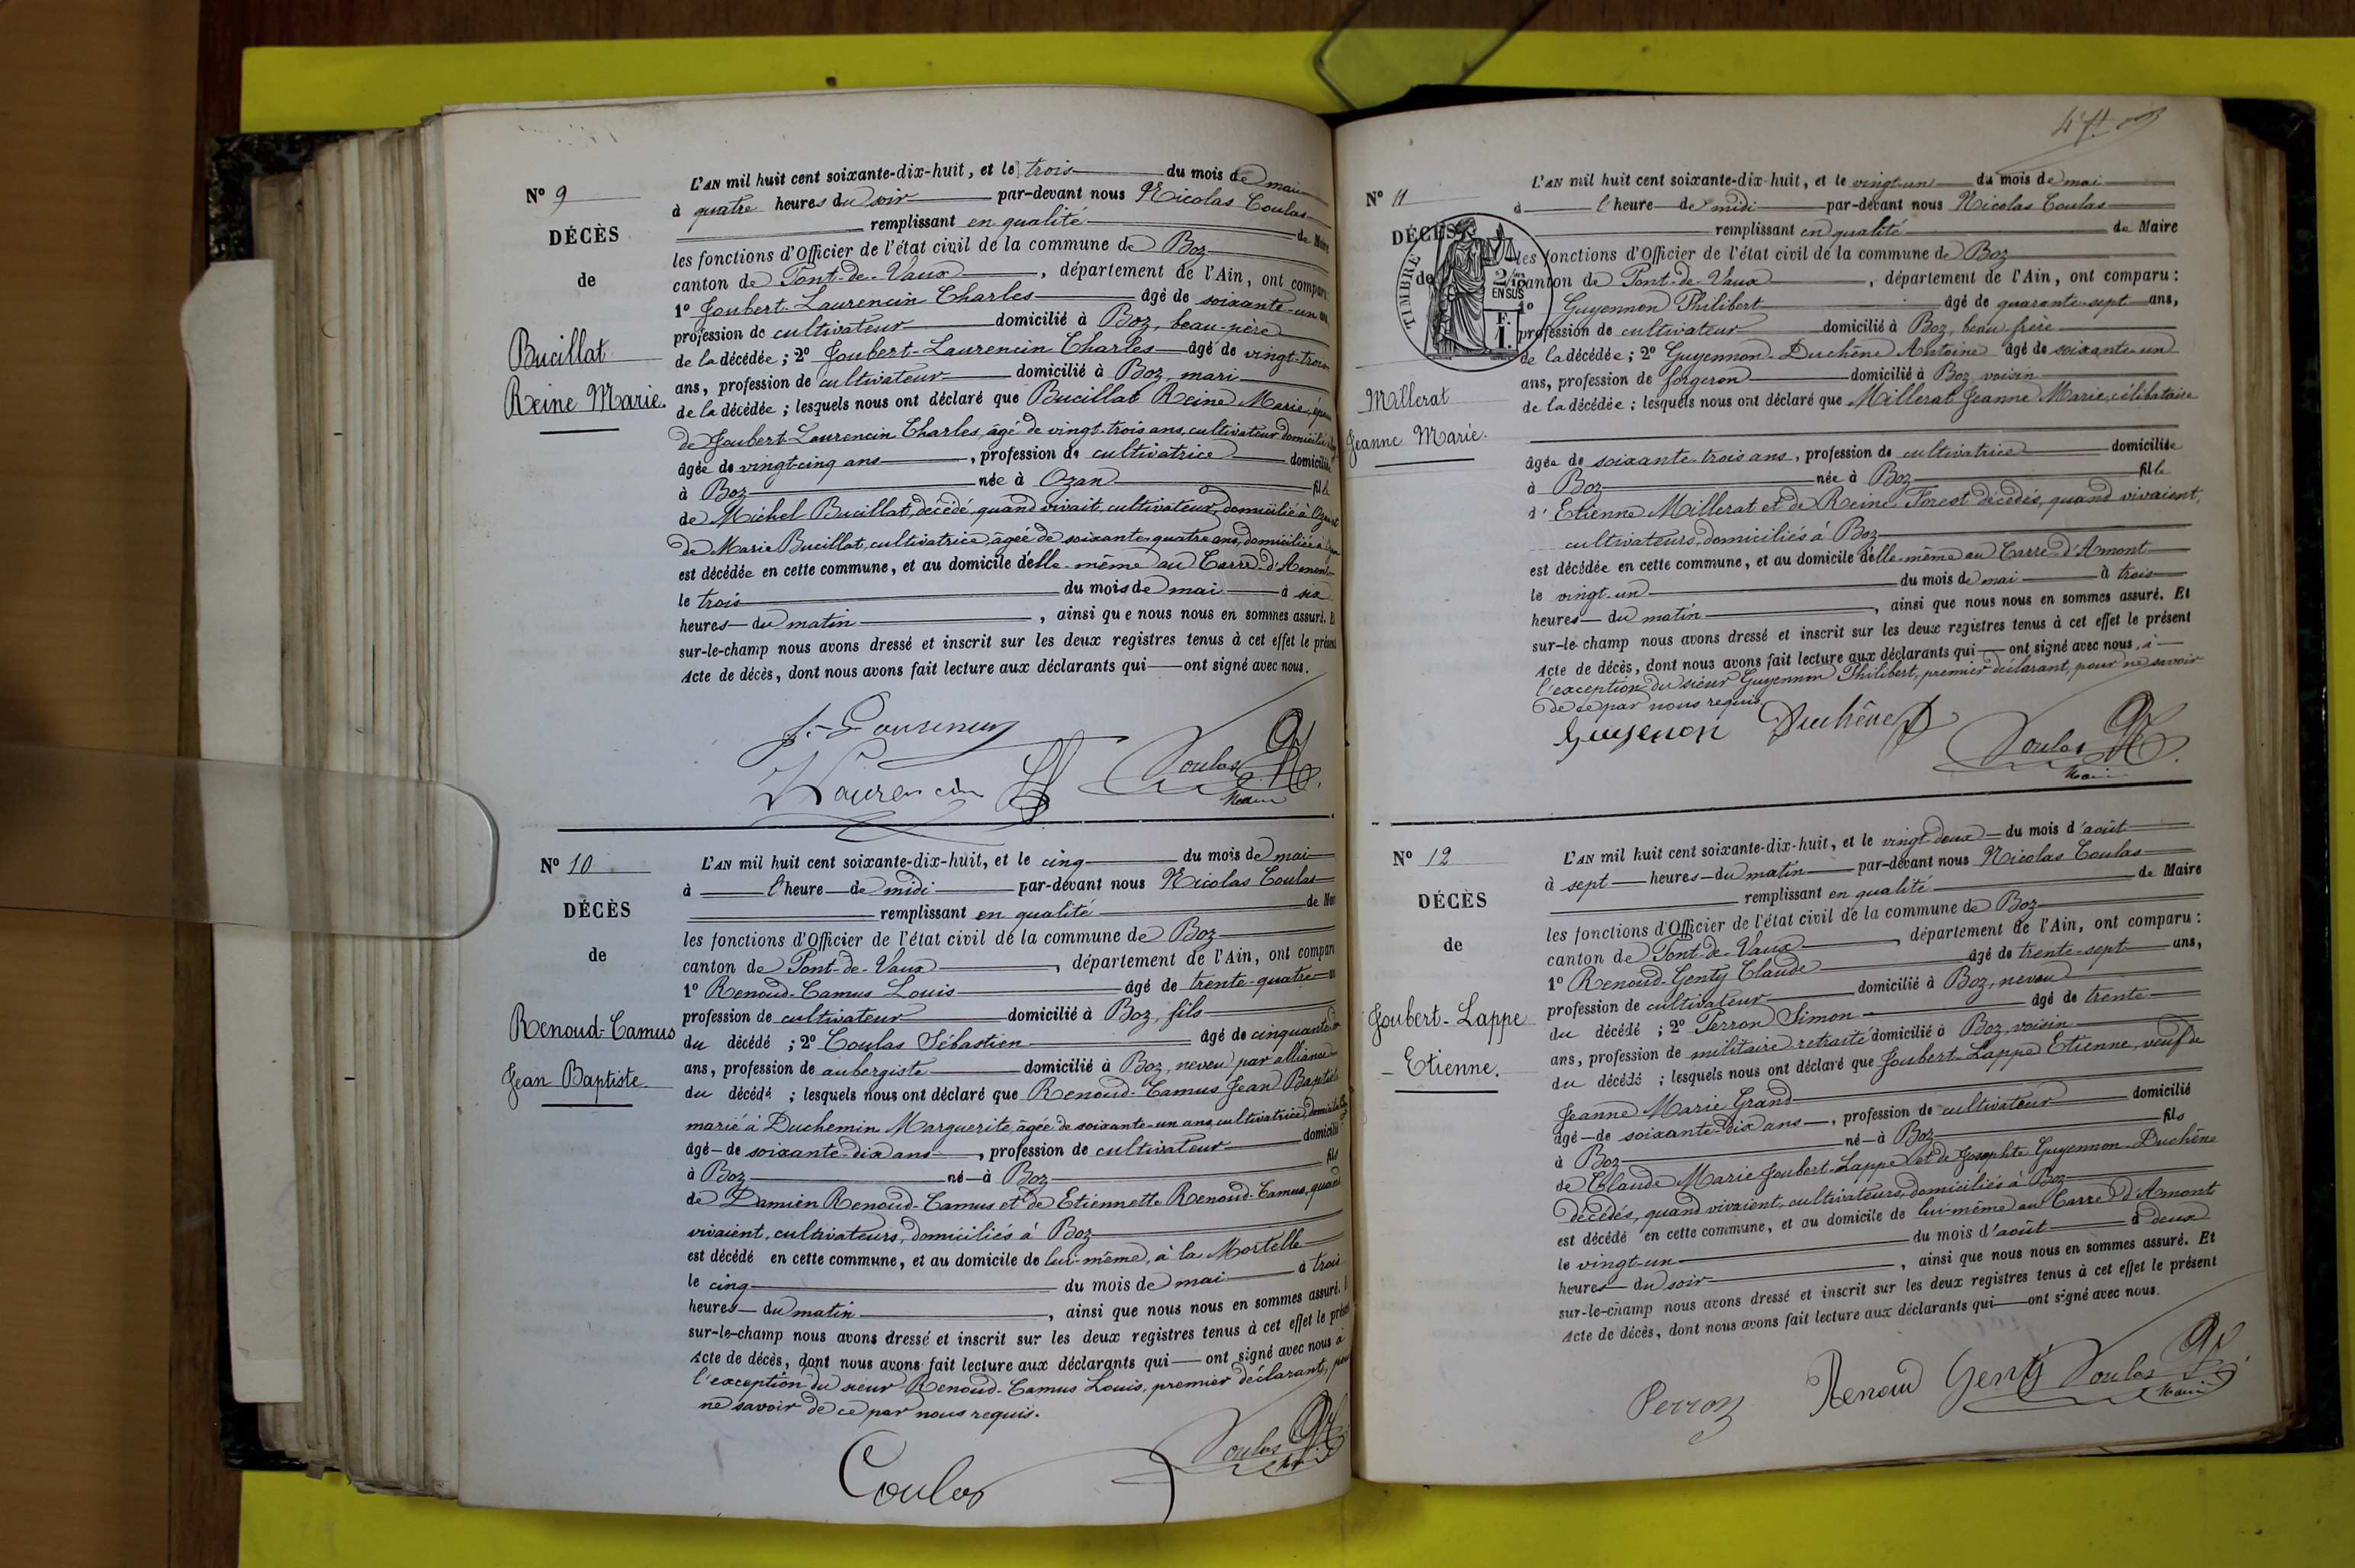 N° 9
DÉCÈS
de
Bucillat
Reine Marie.
L'AN mil huit cent soixante-dix-huit, et le trois du mois de mai
à quatre heures du soir par-devant nous Nicolas Coulas
remplissant en qualité de Maire
les fonctions d'Officier de l'état civil de la commune de Boz
canton de Pont-de-Vaux, département de l'Ain, ont comparu
1° Joubert-Laurencin Charles âgé de soixante-un
profession de cultivateur domicilié à Boz, beau-père
de la décédée ; 2° Joubert-Laurencin Charles âgé de vingt-trois
ans, profession de cultivateur domicilié à Boz, mari
de la décédée ; lesquels nous ont déclaré que Bucillat Reine Marie, épouse
de Joubert-Laurencin Charles, âgé de vingt-trois ans, cultivateur domicilié
âgée de vingt-cinq ans, profession de cultivatrice domiciliée
à Boz née à Ozan fille
de Michel Bucillat, décédé, quand vivait, cultivateur, domicilié à Ozan et
de Marie Bucillat, cultivatrice, âgée de soixante-quatre ans, domiciliée à
est décédée en cette commune, et au domicile d'elle-même au Carre d'Amont
le trois du mois de mai à six
heures du matin, ainsi que nous nous en sommes assuré. Et
sur-le-champ nous avons dressé et inscrit sur les deux registres tenus à cet effet le présent
Acte de décès, dont nous avons fait lecture aux déclarants qui ont signé avec nous.
Laurencin
Coulas
Maire
N° 10
DÉCÈS
de
Renoud-Camus
Jean Baptiste.
L'AN mil huit cent soixante-dix-huit, et le cinq du mois de mai
à l'heure de midi par-devant nous Nicolas Coulas
remplissant en qualité de
les fonctions d'Officier de l'état civil de la commune de Boz
canton de Pont-de-Vaux, département de l'Ain, ont comparu
1° Renoud-Camus Louis âgé de trente-quatre
profession de cultivateur domicilié à Boz, fils
du décédé ; 2° Coulas Sébastien âgé de cinquante
ans, profession de aubergiste domicilié à Boz, neveu par alliance
du décédé ; lesquels nous ont déclaré que Renoud-Camus Jean Baptiste
marié à Duchemin Marguerite, âgée de soixante-un ans, cultivatrice,
âgé de soixante-dix ans, profession de cultivateur domicilié
à Boz né à Boz fils
de Damien Renoud-Camus et de Etiennette Renoud-Camus, quand
vivaient, cultivateurs, domiciliés à Boz
est décédé en cette commune, et au domicile de lui-même, à la Mortelle
le cinq du mois de mai à trois
heures du matin, ainsi que nous nous en sommes assuré.
sur-le-champ nous avons dressé et inscrit sur les deux registres tenus à cet effet le présent
Acte de décès, dont nous avons fait lecture aux déclarants qui ont signé avec nous à
l'exception du sieur Renoud-Camus Louis, premier déclarant, pour
ne savoir de ce par nous requis.
Coulas
Coulas
N° 11
DÉCÈS
de
TIMBRE
2/10 EN SUS
Millerat
Jeanne Marie.
L'AN mil huit cent soixante-dix-huit, et le vingt-un du mois de mai
à l'heure de midi par-devant nous Nicolas Coulas
remplissant en qualité de Maire
les fonctions d'Officier de l'état civil de la commune de Boz
canton de Pont-de-Vaux, département de l'Ain, ont comparu :
1° Guyennon Philibert âgé de quarante-sept ans,
profession de cultivateur domicilié à Boz, beau-frère
de la décédée ; 2° Guyennon-Duchêne Antoine âgé de soixante-un
ans, profession de forgeron domicilié à Boz, voisin
de la décédée ; lesquels nous ont déclaré que Millerat Jeanne Marie, célibataire
âgée de soixante-trois ans, profession de cultivatrice domiciliée
à Boz née à Boz fille
d'Etienne Millerat et de Reine Forest décédés, quand vivaient,
cultivateurs, domiciliés à Boz
est décédée en cette commune, et au domicile d'elle-même au Carre d'Amont
le vingt-un du mois de mai à trois
heures du matin, ainsi que nous nous en sommes assuré. Et
sur-le-champ nous avons dressé et inscrit sur les deux registres tenus à cet effet le présent
Acte de décès, dont nous avons fait lecture aux déclarants qui ont signé avec nous, à
l'exception du sieur Guyennon Philibert, premier déclarant, pour ne savoir
de ce par nous requis
Guyenon Duchêne
Coulas
Maire
N° 12
DÉCÈS
de
Joubert-Lappe
Etienne.
L'AN mil huit cent soixante-dix-huit, et le vingt-deux du mois d'août
à sept heures du matin par-devant nous Nicolas Coulas
remplissant en qualité de Maire
les fonctions d'Officier de l'état civil de la commune de Boz
canton de Pont-de-Vaux, département de l'Ain, ont comparu :
1° Renoud-Genty Claude âgé de trente-sept ans,
profession de cultivateur domicilié à Boz, neveu
du décédé ; 2° Perron Simon âgé de trente
ans, profession de militaire retraité domicilié à Boz, voisin
du décédé ; lesquels nous ont déclaré que Joubert-Lappe Etienne, veuf de
Jeanne Marie Grand
âgé de soixante-dix ans, profession de cultivateur domicilié
à Boz né à Boz fils
de Claude Marie Joubert-Lappe et de Josephte Guyennon-Duchêne
décédés, quand vivaient, cultivateurs, domiciliés à Boz
est décédé en cette commune, et au domicile de lui-même au Carre d'Amont
le vingt-un du mois d'août à deux
heures du soir, ainsi que nous nous en sommes assuré. Et
sur-le-champ nous avons dressé et inscrit sur les deux registres tenus à cet effet le présent
Acte de décès, dont nous avons fait lecture aux déclarants qui ont signé avec nous.
Perron Renoud Genty Coulas
Maire